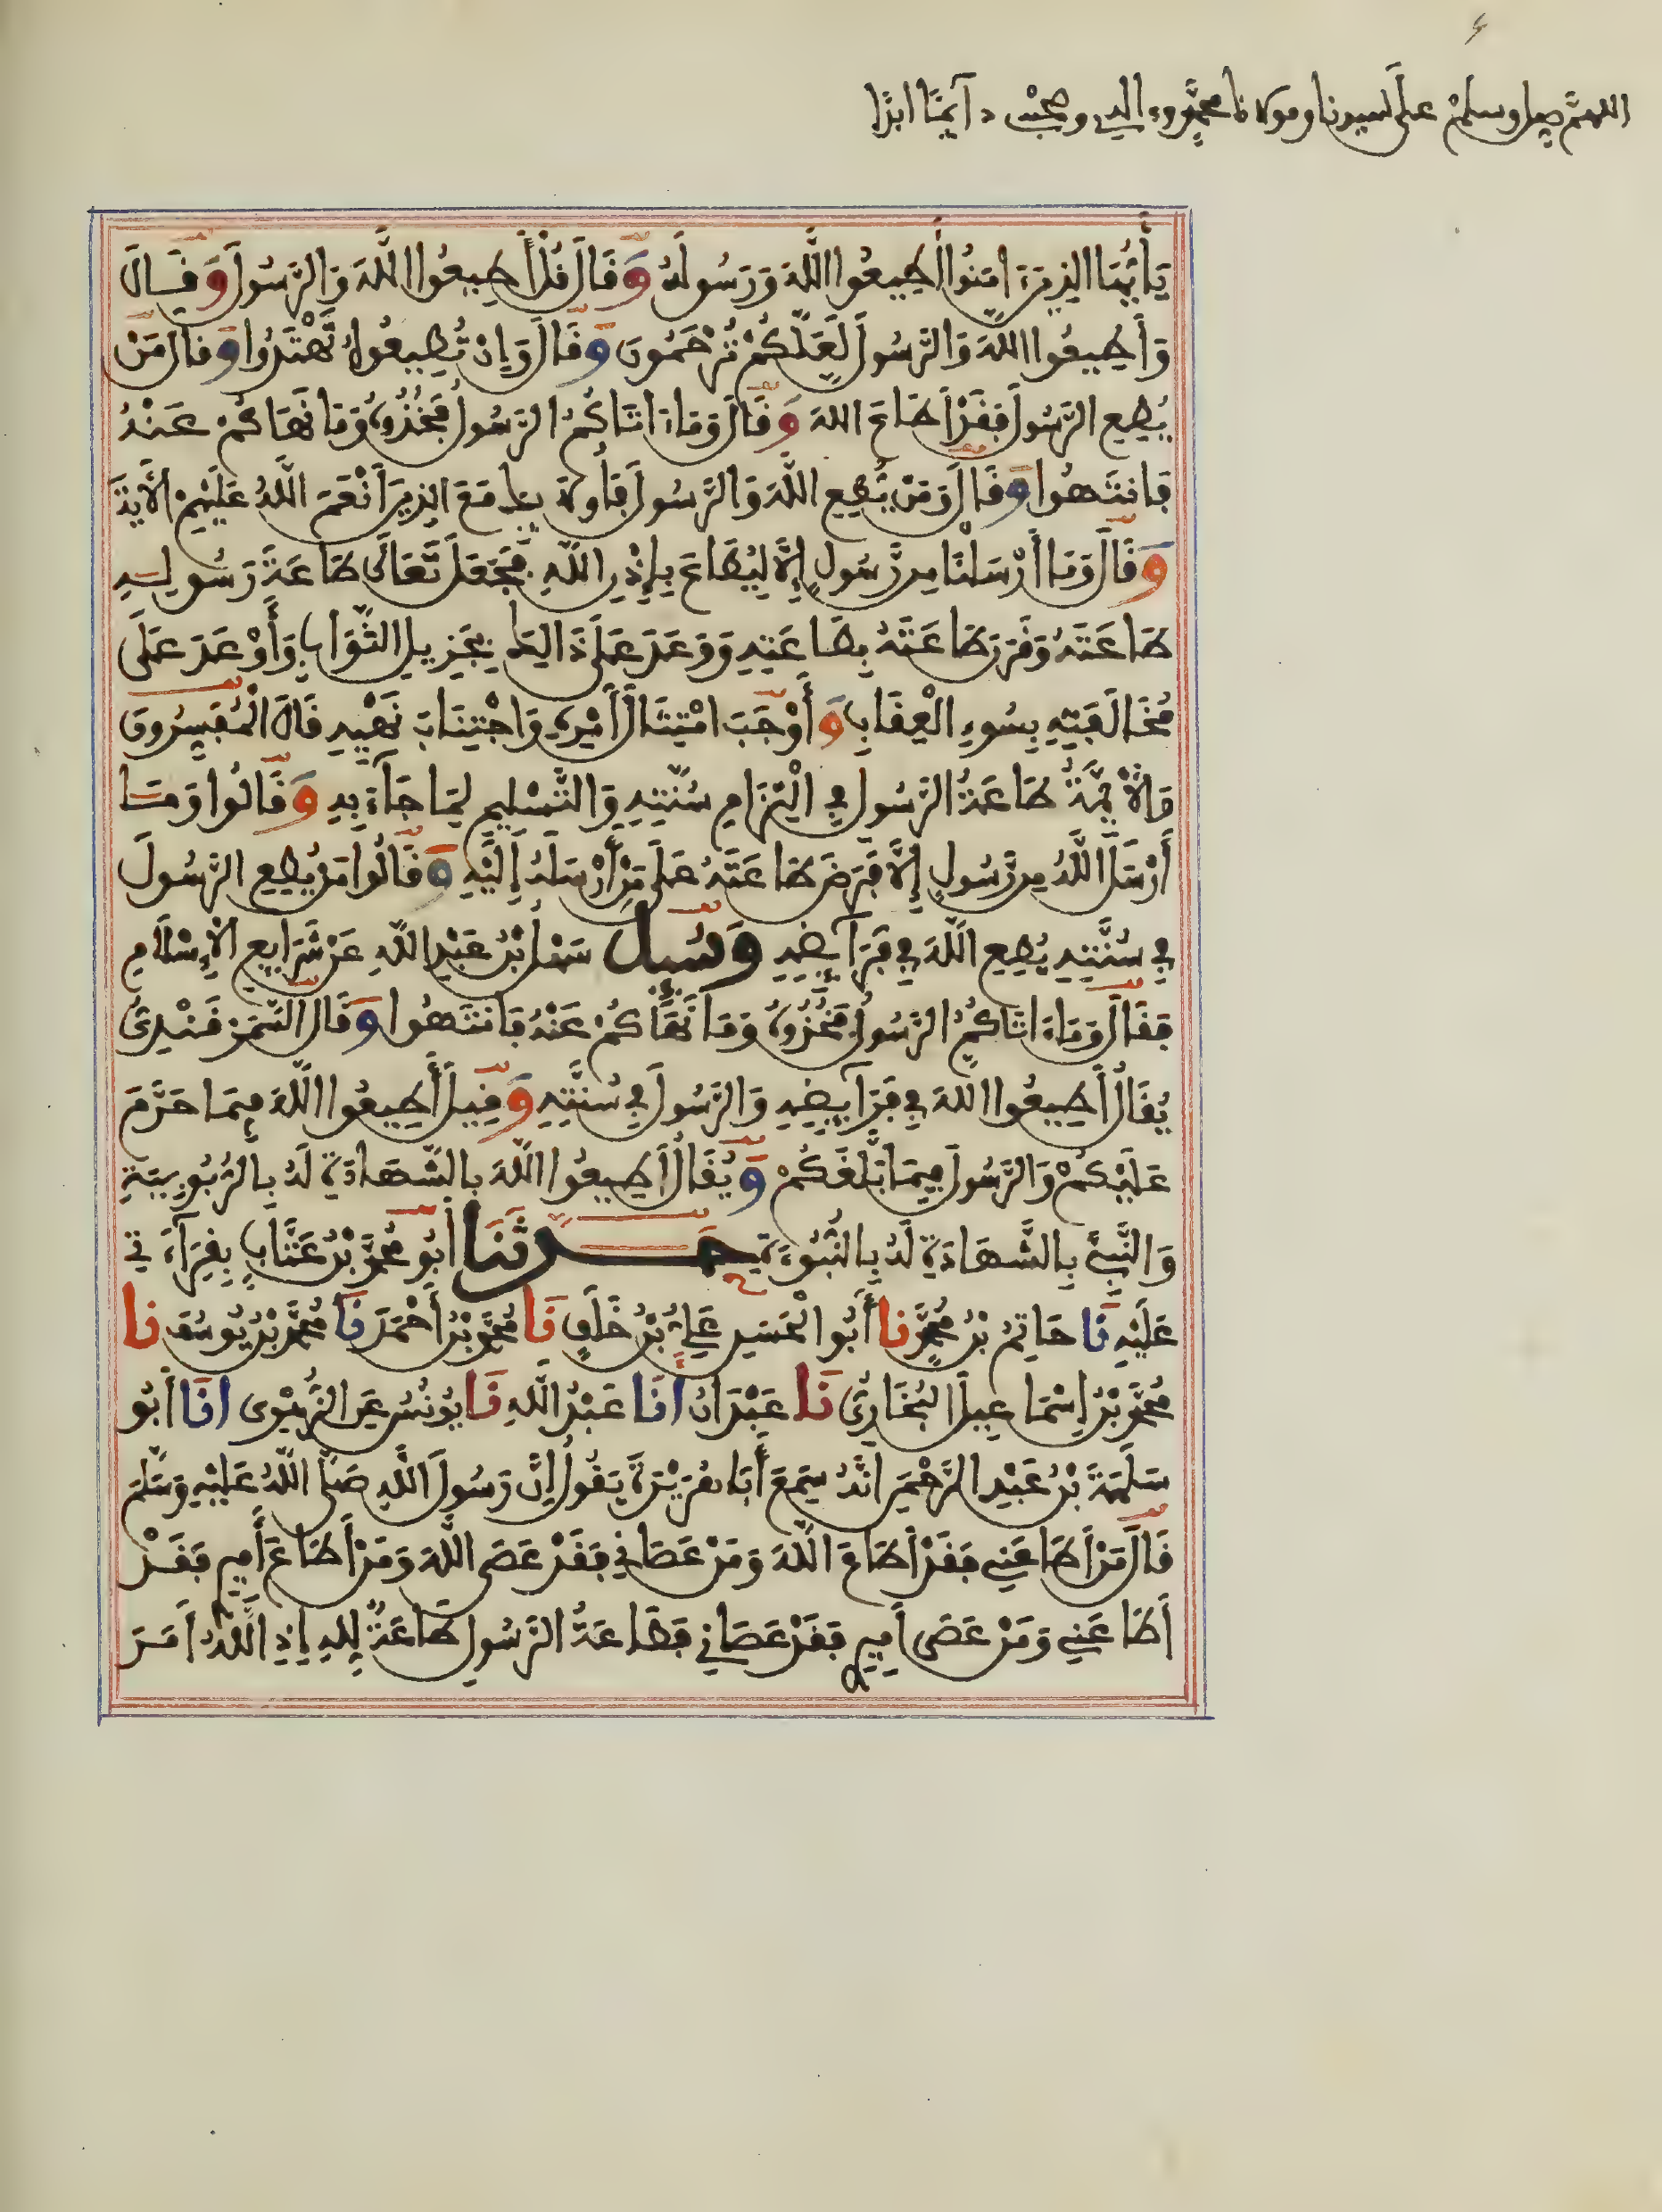 اللهم صل وسلم على سيدنا ومولانا محمد وءاله وصحبه دآيما ابدا
يَا أَيُّهَا الذِينَ ءَامَنُوا أَطِيعُوا اللَّهَ وَرَسُولَهُ وَقَالَ قُلْ أَطِيعُوا اللَّهَ وَالرَّسُولَ وَقَالَ
وَأَطِيعُوا اللَّهَ وَالرَّسُولَ لَعَلَّكُمْ تُرْحَمُونَ وَقَالَ وَإِن تُطِيعُوهُ تَهْتَدُوا وَقَالَ مَنْ
يُطِعِ الرَّسُولَ فَقَدْ أَطَاعَ اللَّهَ وَقَالَ وَمَا ءَاتَاكُمُ الرَّسُولُ فَخُذُوهُ وَمَا نَهَاكُمْ عَنْهُ
فَانتَهُوا وَقَالَ وَمَنْ يُطِعِ اللَّهَ وَالرَّسُولَ فَأُولَئِكَ مَعَ الذِينَ أَنْعَمَ اللَّهُ عَلَيْهِمُ الْآيَةَ
وَقَالَ وَمَا أَرْسَلْنَا مِن رَّسُولٍ إِلَّا لِيُطَاعَ بِإِذْنِ اللَّهِ فَجَعَلَ تَعَالَى طَاعَةَ رَسُولِهِ
طَاعَتَهُ وَقَرَنَ طَاعَتَهُ بِطَاعَتِهِ وَوَعَدَ عَلَى ذَالِكَ بِجَزِيلِ الثَّوَابِ وَأَوْعَدَ عَلَى
مُخَالَفَتِهِ بِسُوءِ الْعِقَابِ وَأَوْجَبَ امْتِثَالَ أَمْرِهِ وَاجْتِنَابَ نَهْيِهِ قَالَ الْمُفَسِّرُونَ
وَالْأَئِمَّةُ طَاعَةُ الرَّسُولِ فِي الْتِزَامِ سُنَّتِهِ وَالتَّسْلِيمِ لِمَا جَآءَ بِهِ وَقَالُوا وَمَا
أَرْسَلَ اللَّهُ مِن رَّسُولٍ إِلَّا فَرَضَ طَاعَتَهُ عَلَى مَنْ أَرْسَلَهُ إِلَيْهِ وَقَالُوا مَن يُطِعِ الرَّسُولَ
فِي سُنَّتِهِ يُطِعِ اللَّهَ فِي فَرَآئِضِهِ وَسُئِلَ سَهْلُ بْنُ عَبْدِ اللَّهِ عَنْ شَرَايِعِ الْإِسْلَامِ
فَقَالَ وَمَا ءَاتَاكُمُ الرَّسُولُ فَخُذُوهُ وَمَا نَهَاكُمْ عَنْهُ فَانتَهُوا وَقَالَ السَّمَرْقَنْدِيُّ
يُقَالُ أَطِيعُوا اللَّهَ فِي فَرَآيِضِهِ وَالرَّسُولَ فِي سُنَّتِهِ وَقِيلَ أَطِيعُوا اللَّهَ فِيمَا حَرَّمَ
عَلَيْكُمْ وَالرَّسُولَ فِيمَا بَلَّغَكُمْ وَيُقَالُ أَطِيعُوا اللَّهَ بِالشَّهَادَةِ لَهُ بِالرُّبُوبِيَّةِ
وَالنَّبِيَّ بِالشَّهَادَةِ لَهُ بِالنُّبُوءَةِ حَدَّثَنَا أَبُو مُحَمَّدِ بْنُ عَتَّابٍ بِقِرَآءَتِي
عَلَيْهِ نَا حَاتِمُ بْنُ مُحَمَّدٍ نا أَبُو الْحَسَنِ عَلِيُّ بْنُ خَلَفٍ نَا مُحَمَّدُ بْنُ أَحْمَدَ نَا مُحَمَّدُ بْنُ يُوسُفَ نا
مُحَمَّدُ بْنُ إِسْمَاعِيلَ الْبُخَارِيُّ نَا عَبْدَانُ أَنَا عَبْدُ اللَّهِ نَا يُونُسُ عَنِ الزُّهْرِيِّ انَا أَبُو
سَلَمَةَ بْنُ عَبْدِ الرَّحْمَنِ أَنَّهُ سَمِعَ أَبَا هُرَيْرَةَ يَقُولُ إِنَّ رَسُولَ اللَّهِ صَلَّى اللَّهُ عَلَيْهِ وَسَلَّمَ
قَالَ مَنْ أَطَاعَنِي فَقَدْ أَطَاعَ اللَّهَ وَمَنْ عَصَانِي فَقَدْ عَصَى اللَّهَ وَمَنْ أَطَاعَ أَمِيرِي فَقَدْ
أَطَاعَنِي وَمَنْ عَصَى أَمِيرِي فَقَدْ عَصَانِي فَطَاعَةُ الرَّسُولِ طَاعَةٌ لِلهِ إِذِ اللَّهُ أَمَرَ